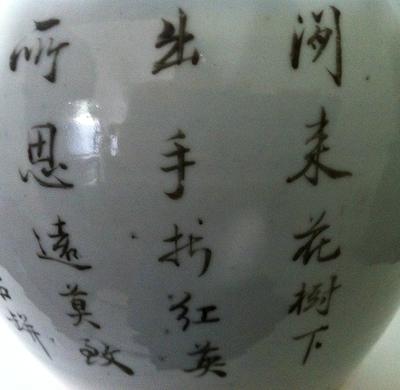 閑来花樹下
出手折紅英
所恩遠莫致